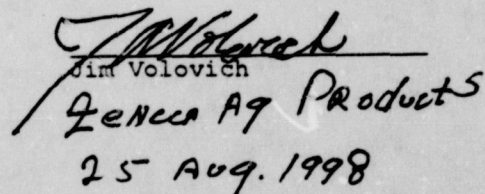 Jim Volovich
Zeneca Ag Products
25 Aug. 1998